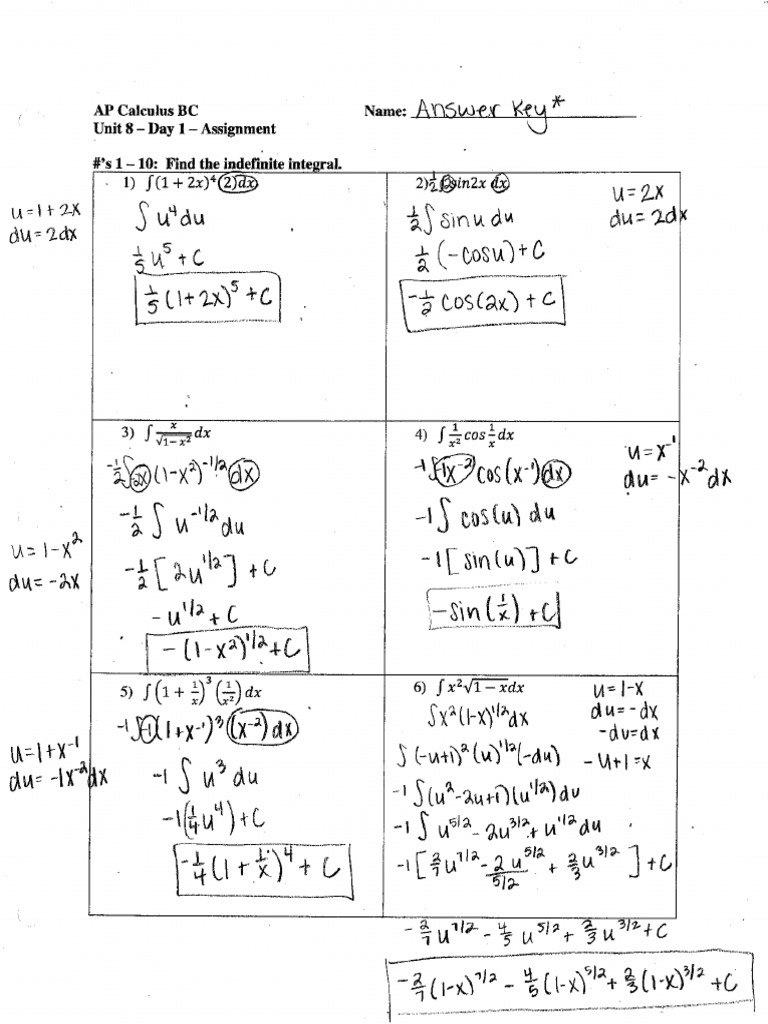 AP Calculus BC
Name: Answer Key*
Unit 8 – Day 1 – Assignment
#'s 1 – 10: Find the indefinite integral.
1) ∫(1 + 2x)⁴ (2)dx
u = 1 + 2x
du = 2dx
∫ u⁴ du
1/5 u⁵ + C
1/5 (1 + 2x)⁵ + C
2) 1/2 ∫ 2 sin2x dx
u = 2x
du = 2dx
1/2 ∫ sin u du
1/2 (-cos u) + C
-1/2 cos(2x) + C
3) ∫ x/√(1 − x²) dx
-1/2 ∫ -2x (1-x²)^(-1/2) dx
-1/2 ∫ u^(-1/2) du
u = 1 - x²
du = -2x
-1/2 [2u^(1/2)] + C
- u^(1/2) + C
- (1-x²)^(1/2) + C
4) ∫ 1/x² cos 1/x dx
u = x⁻¹
du = -x⁻² dx
-1 ∫ -1x⁻² cos(x⁻¹) dx
-1 ∫ cos(u) du
-1 [sin(u)] + C
- sin(1/x) + C
5) ∫ (1 + 1/x)³ (1/x²) dx
-1 ∫ -1 (1 + x⁻¹)³ (x⁻²) dx
u = 1 + x⁻¹
du = -1x⁻² dx
-1 ∫ u³ du
-1 (1/4 u⁴) + C
-1/4 (1 + 1/x)⁴ + C
6) ∫ x²√(1 − x) dx
u = 1-x
du = -dx
-du = dx
-u+1 = x
∫ x² (1-x)^(1/2) dx
∫ (-u+1)² (u)^(1/2) (-du)
-1 ∫ (u² - 2u + 1)(u^(1/2)) du
-1 ∫ u^(5/2) - 2u^(3/2) + u^(1/2) du
-1 [2/7 u^(7/2) - 2u^(5/2)/(5/2) + 2/3 u^(3/2)] + C
-2/7 u^(7/2) - 4/5 u^(5/2) + 2/3 u^(3/2) + C
-2/7 (1-x)^(7/2) - 4/5 (1-x)^(5/2) + 2/3 (1-x)^(3/2) + C